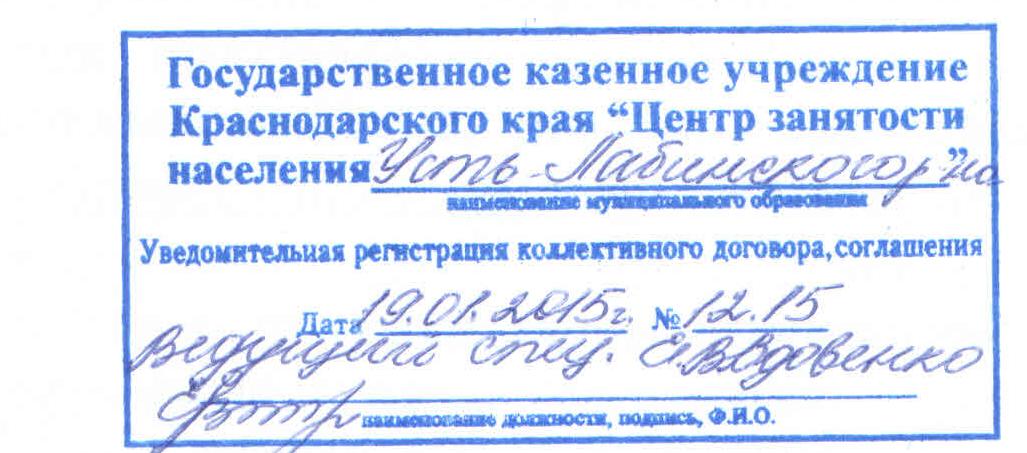 Государственное казенное учреждение
Краснодарского края “Центр занятости
населения Усть-Лабинского р-на”
наименование муниципального образования
Уведомительная регистрация коллективного договора, соглашения
Дата 19.01.2015г. № 12.15
Ведущий спец. Е.В. Вдовенко
наименование должности, подпись, Ф.И.О.